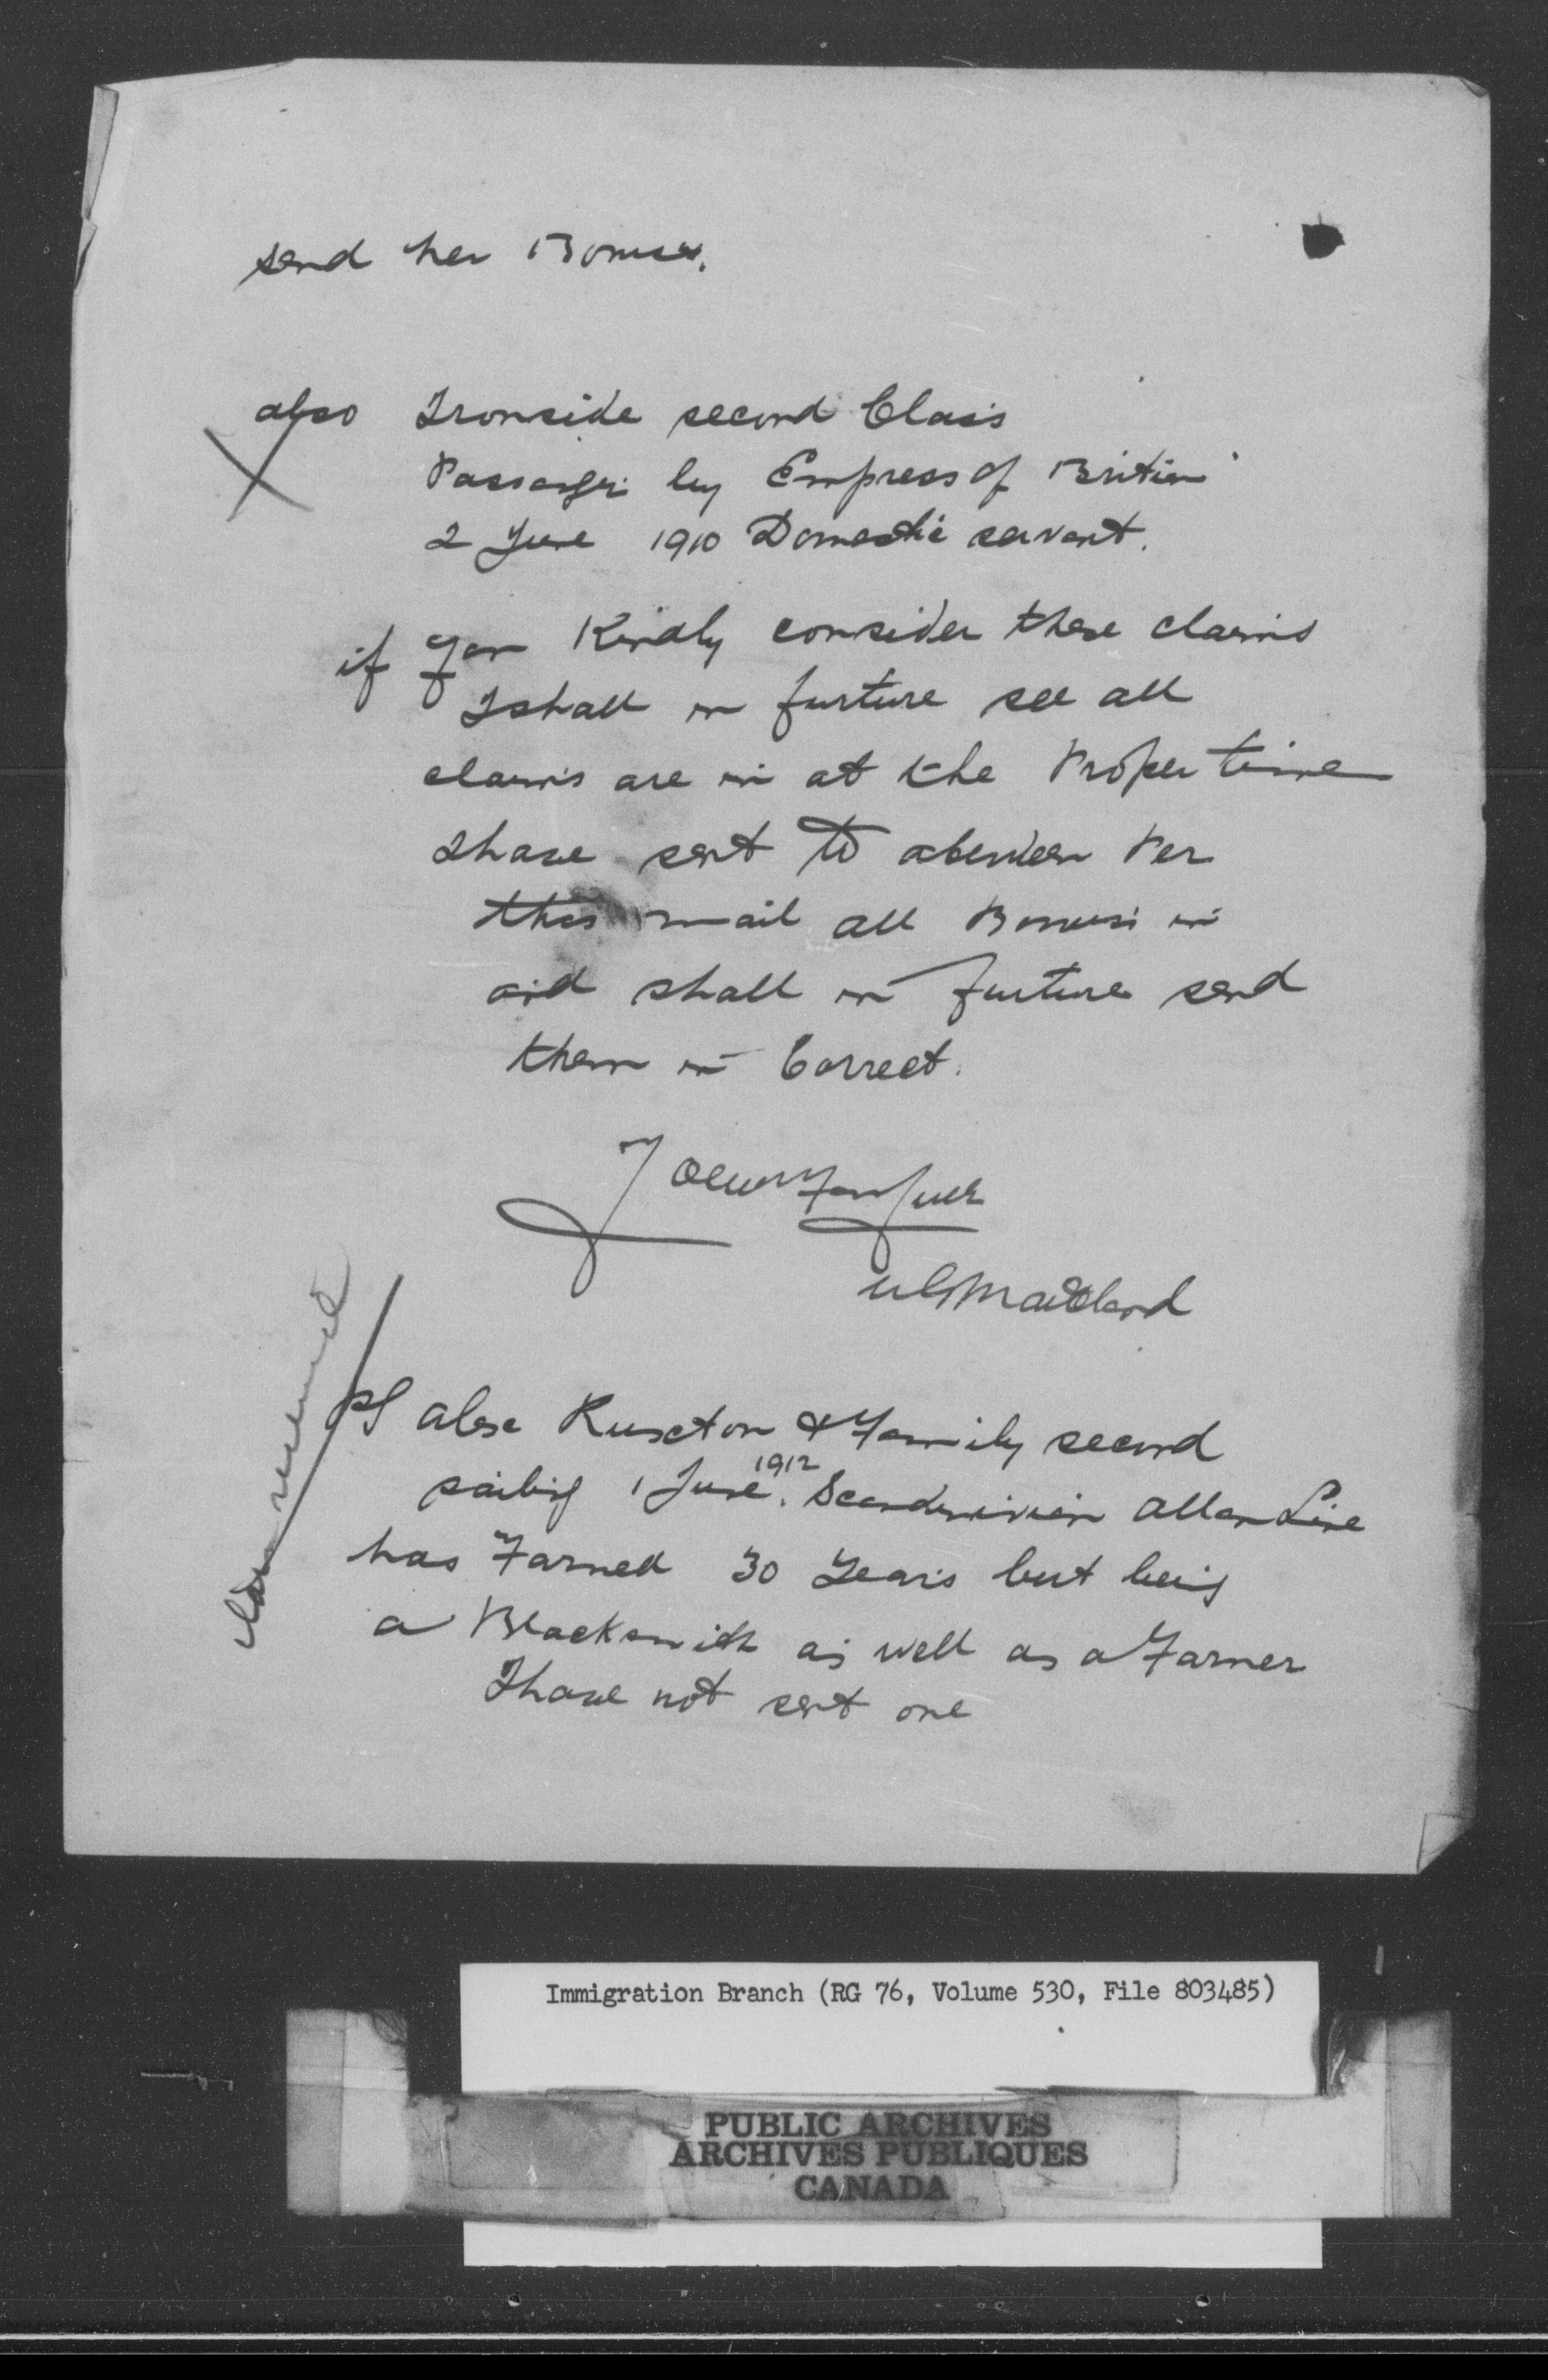 send her Bonuses.
also Ironside second Class
Passenger by Empress of Britian
2 June 1910 Domestic servant.
if you Kindly consider these claims
I shall in furture see all
claims are in at the Proper time
I have sent to aberdeen Per
this mail all Bonuses in
and shall in furture send
them in Correct.
I am yours Truly
W G Maitland
PS also Ruxton & Family second
sailing 1 June 1912. Scandinivian Allan Line
has Farmed 30 Years but being
a Blacksmith as well as a Farmer
I have not sent one
Immigration Branch (RG 76, Volume 530, File 803485)
PUBLIC ARCHIVES
ARCHIVES PUBLIQUES
CANADA